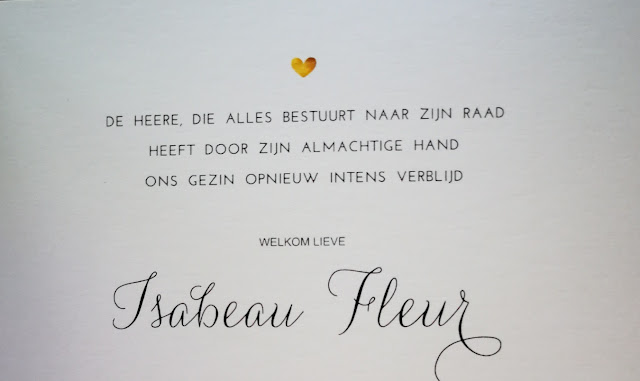 DE HEERE, DIE ALLES BESTUURT NAAR ZIJN RAAD
HEEFT DOOR ZIJN ALMACHTIGE HAND
ONS GEZIN OPNIEUW INTENS VERBLIJD
WELKOM LIEVE
Isabeau Fleur